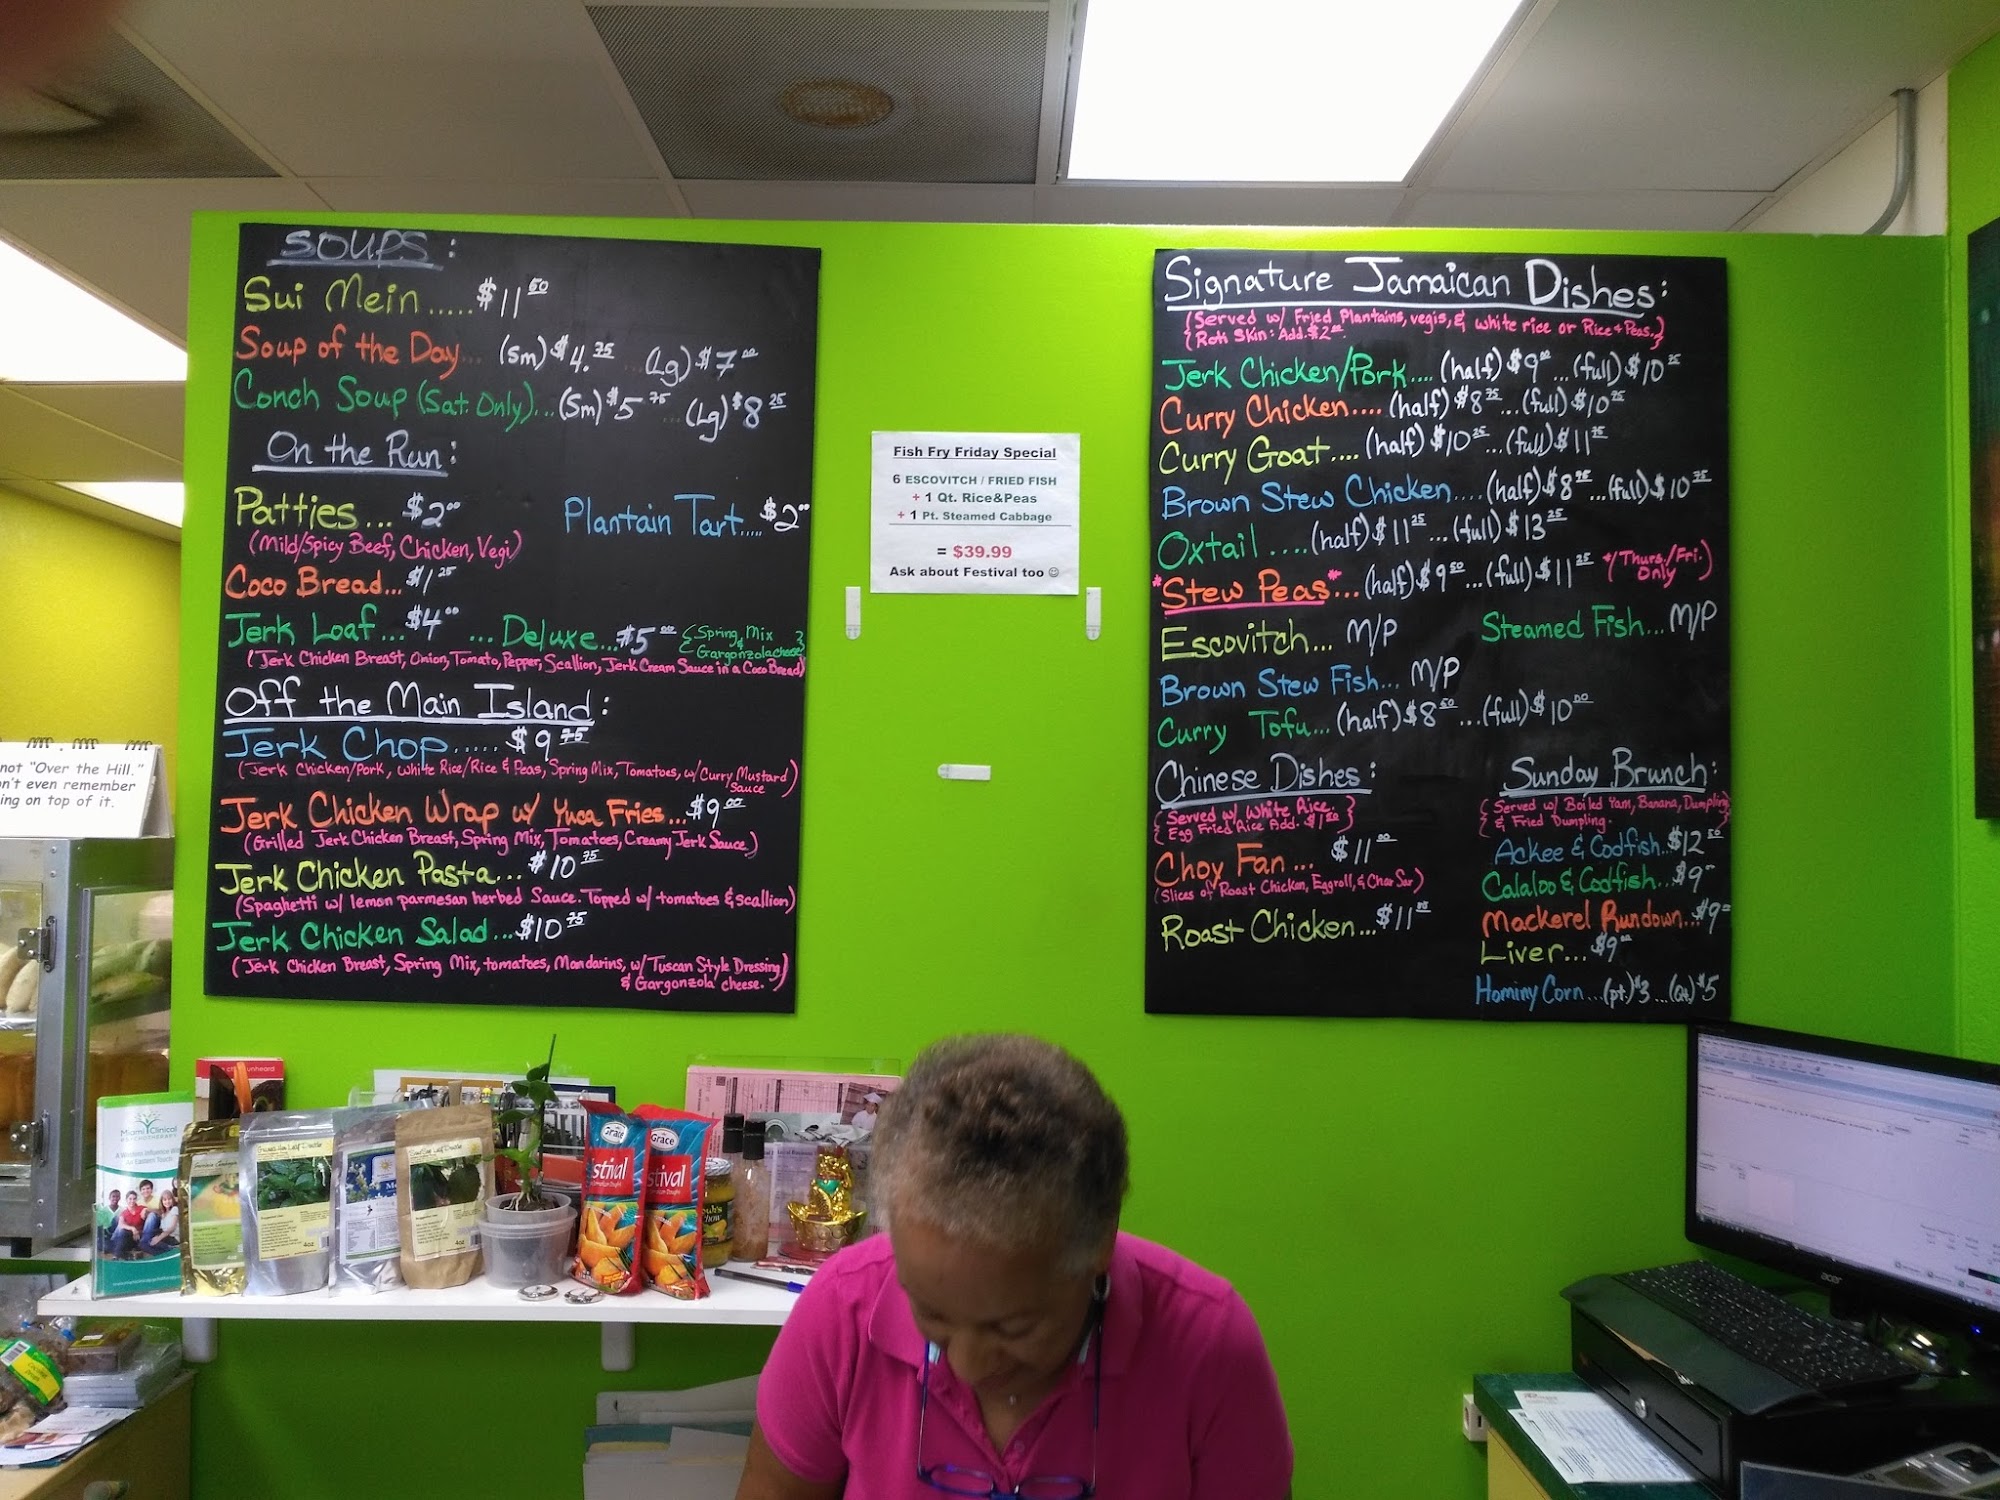 SOUPS:
Sui Mein..... $11 50
Soup of the Day... (Sm) $4.75 ...(Lg) $7 00
Conch Soup (Sat. Only)...(Sm) $5 75 ...(Lg) $8 25
On the Run:
Patties... $2 00
Plantain Tart..... $2 00
(Mild/Spicy Beef, Chicken, Vegi)
Coco Bread... $1 25
Jerk Loaf... $4 00 ...Deluxe...$5 00 {Spring Mix
& Gargonzola cheese}
(Jerk Chicken Breast, Onion, Tomato, Pepper, Scallion, Jerk Cream Sauce in a Coco Bread)
Off the Main Island:
Jerk Chop...... $9 75
(Jerk Chicken/Pork, White Rice/Rice & Peas, Spring Mix, Tomatoes, w/ Curry Mustard
Sauce)
Jerk Chicken Wrap w/ Yuca Fries...$9 00
(Grilled Jerk Chicken Breast, Spring Mix, Tomatoes, Creamy Jerk Sauce)
Jerk Chicken Pasta... $10 75
(Spaghetti w/ lemon parmesan herbed Sauce. Topped w/ tomatoes & scallion)
Jerk Chicken Salad...$10 75
(Jerk Chicken Breast, Spring Mix, tomatoes, Mandarins, w/ Tuscan Style Dressing
& Gargonzola cheese.)
Fish Fry Friday Special
6 ESCOVITCH / FRIED FISH
+ 1 Qt. Rice&Peas
+ 1 Pt. Steamed Cabbage
= $39.99
Ask about Festival too ☺
Signature Jamaican Dishes:
{Served w/ Fried Plantains, vegis, & white rice or Rice & Peas.}
{Roti Skin: Add. $2 00
Jerk Chicken/Pork.... (half) $9 00 ...(full) $10 75
Curry Chicken.... (half) $8 75 ...(full) $10 75
Curry Goat.... (half) $10 25 ...(full) $11 75
Brown Stew Chicken....(half) $8 75 ...(full) $10 75
Oxtail ....(half) $11 25 ...(full) $13 25
*Stew Peas*...(half) $9 50 ...(full) $11 25 *(Thurs./Fri.
Only)
Escovitch... M/P
Steamed Fish... M/P
Brown Stew Fish... M/P
Curry Tofu...(half) $8 50 ...(full) $10 00
Chinese Dishes:
{Served w/ White Rice.}
{Egg Fried Rice Add. $1.50}
Choy Fan ... $11 00
(Slices of Roast Chicken, Eggroll, & Char Sur)
Roast Chicken...$11 00
Sunday Brunch:
{Served w/ Boiled Yam, Banana, Dumpling
& Fried Dumpling.}
Ackee & Codfish..$12 50
Calaloo & Codfish...$9
Mackerel Rundown...$9
Liver...$9 00
Hominy Corn...(pt.) $3 ...(Qt.) $5
not "Over the Hill."
n't even remember
ing on top of it.
unheard
Miami Clinical
Grace
stival
Grace
stival
4oz
acer